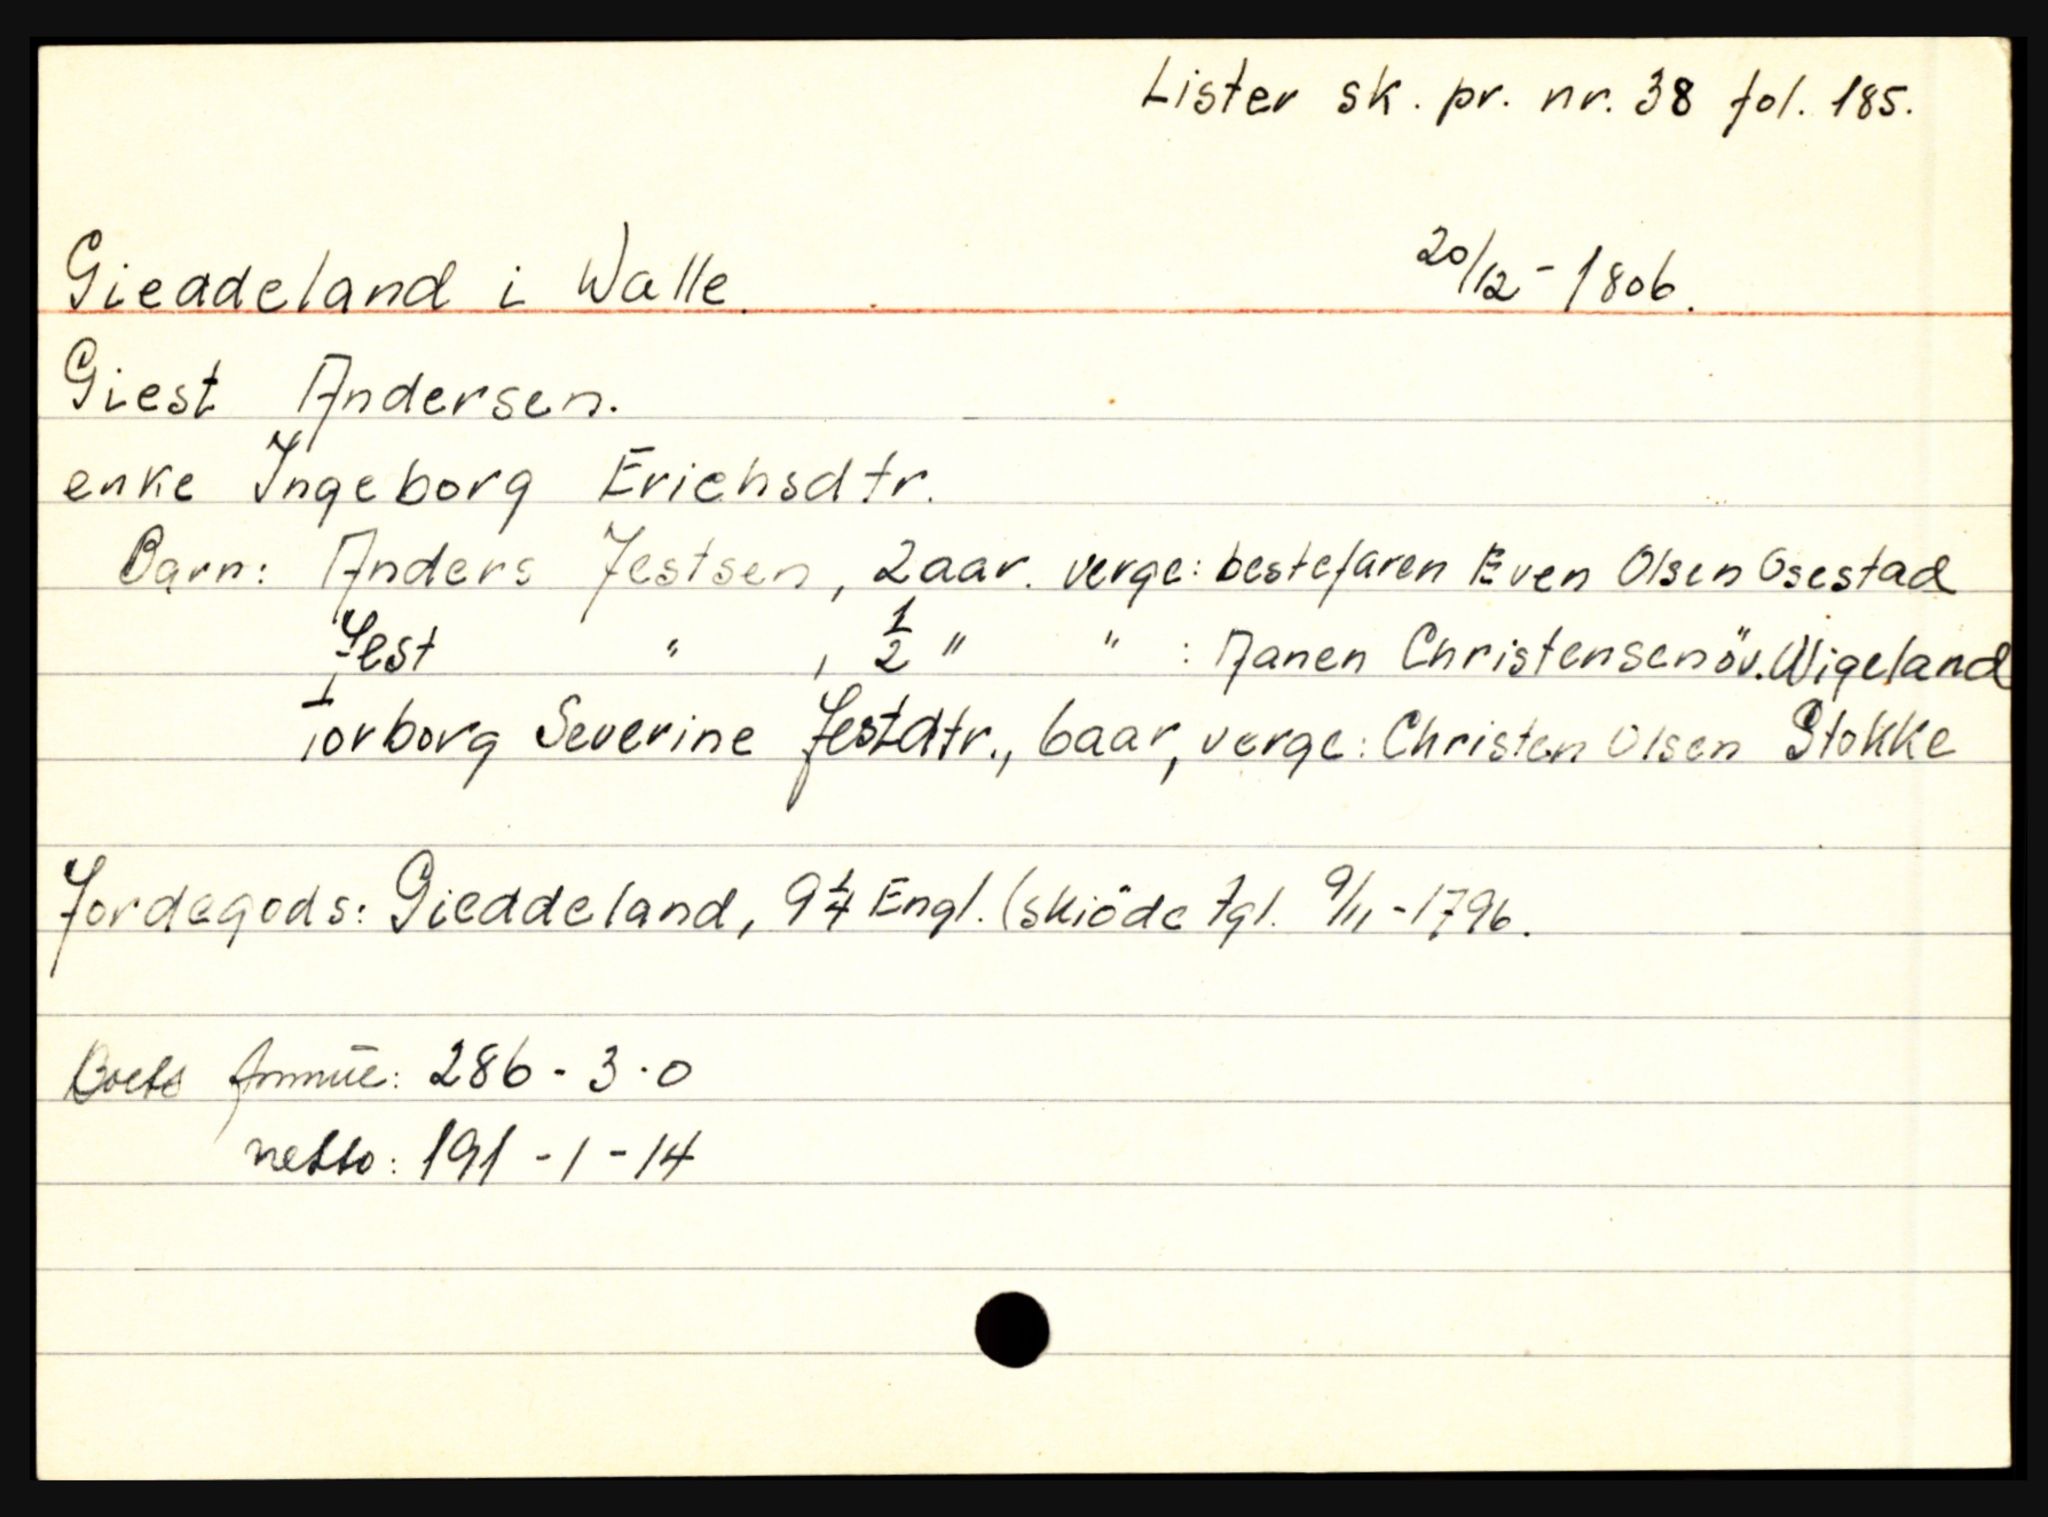 Lister sk. pr. nr. 38 fol. 185.
Gieddeland i Walle. 20/12 - 1806.
Giest Andersen.
enke Ingeborg Erichsdtr.
Barn: Anders Jestsen, 2 aar. verge: bestefaren Even Olsen Osestad
Jest " , 1/2 " " : Aanen Christensen öv. Wigeland
Torborg Severine Jestdtr., 6 aar, verge: Christen Olsen Stokke
Jordegods: Gieddeland, 9 1/4 Engl. (skiöde tgl. 9/11 - 1796.
Boets formue: 286 - 3 - 0
netto: 191 - 1 - 14